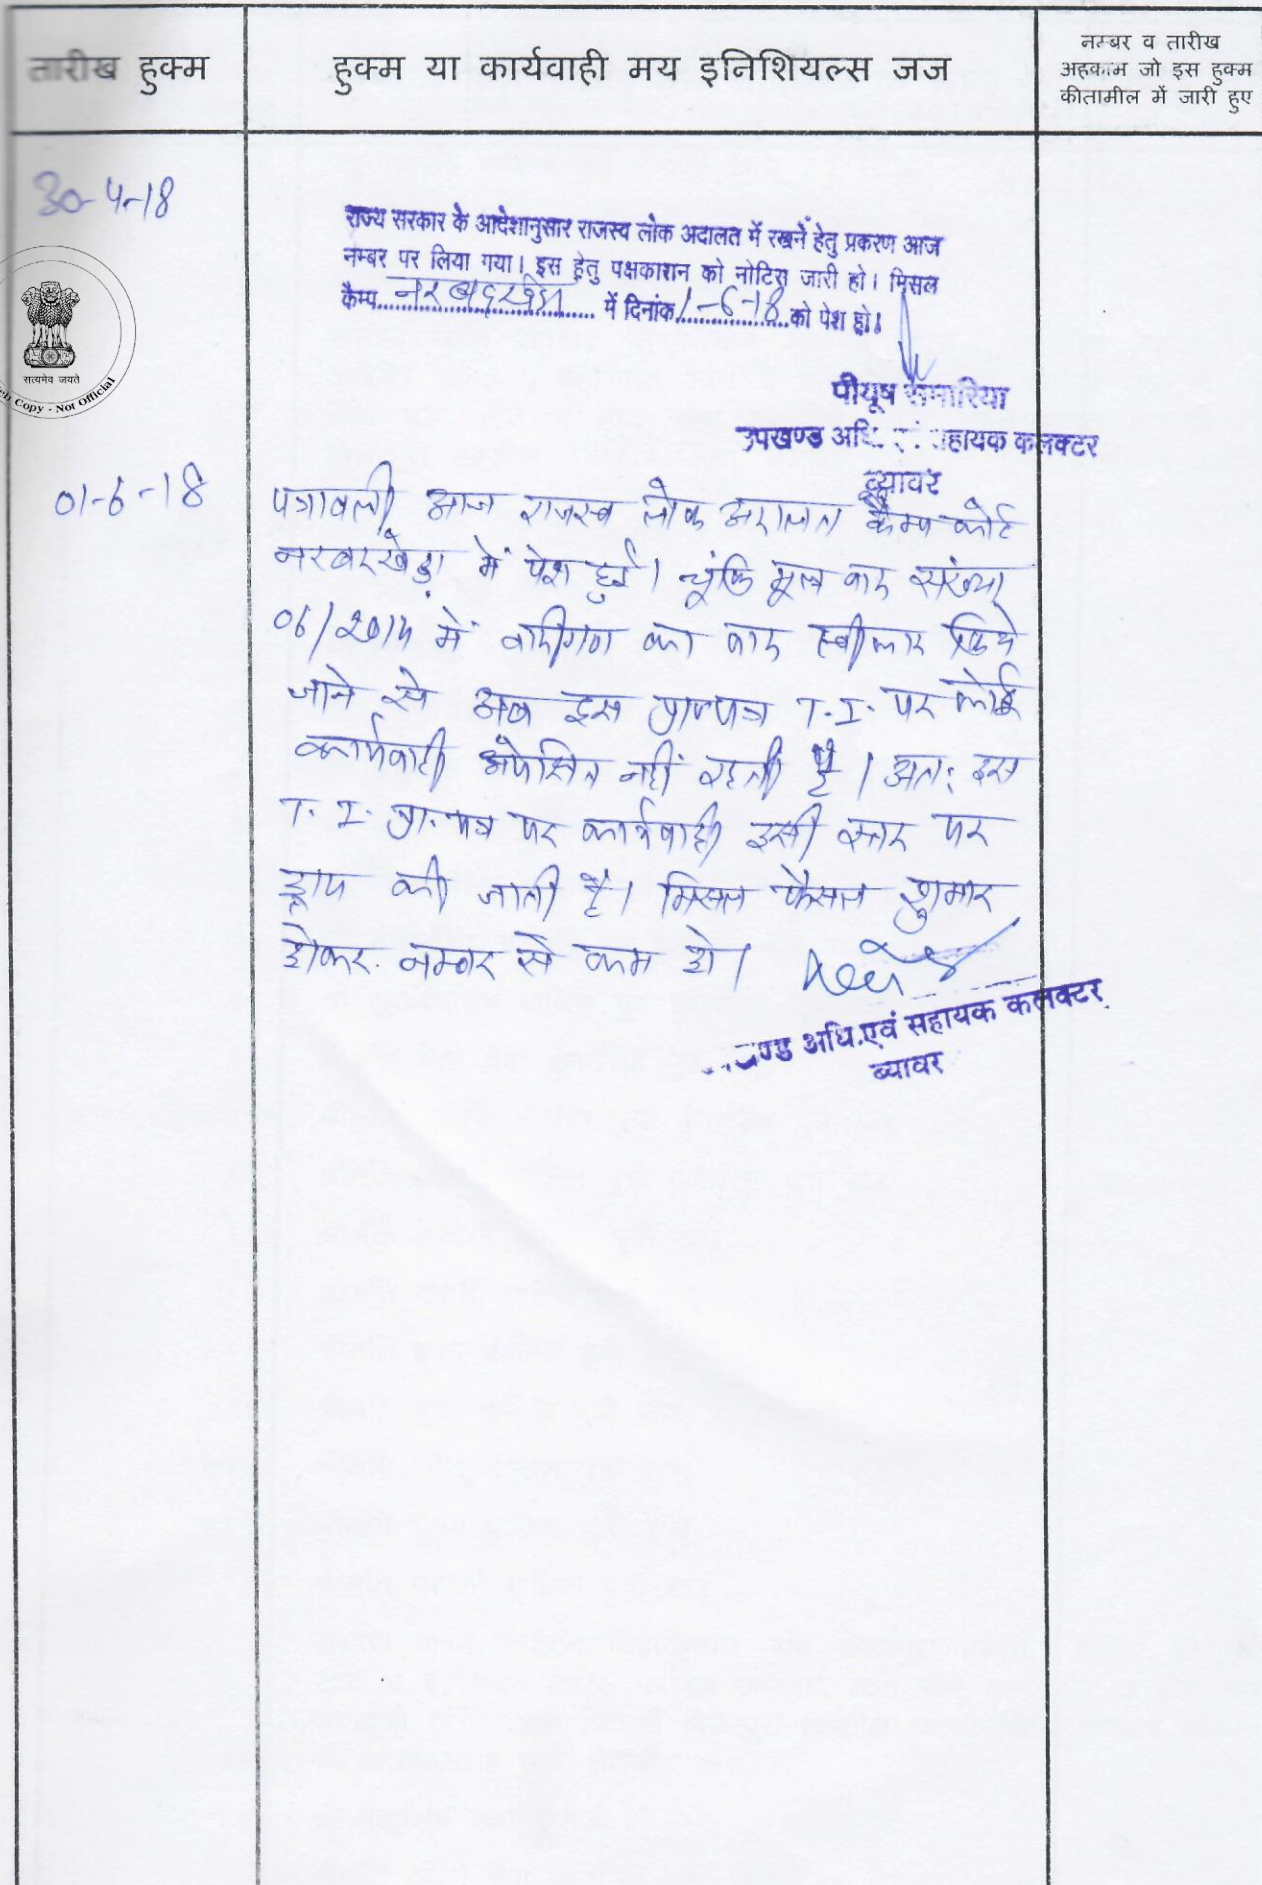 तारीख हुक्म
हुक्म या कार्यवाही मय इनिशियल्स जज
नम्बर व तारीख
अहकाम जो इस हुक्म
कीतामील में जारी हुए
30-4-18
राज्य सरकार के आदेशानुसार राजस्व लोक अदालत में रखनें हेतु प्रकरण आज
नम्बर पर लिया गया। इस हेतु पक्षकारान को नोटिस जारी हो। मिसल
कैम्प नरबदखेडा में दिनांक 1-6-18 को पेश हो।
सत्यमेव जयते
Copy - Not Official
पीयूष समारिया
उपखण्ड अधि. एवं सहायक कलक्टर
ब्यावर
01-6-18
पत्रावली आज राजस्व लोक अदालत कैम्प कोर्ट
नरबदखेड़ा में पेश हुई। चूंकि मूल वाद संख्या
06/2014 में वादीगण का वाद स्वीकार किये
जाने से अब इस प्रा०पत्र T.I. पर कोई
कार्यवाही अपेक्षित नहीं रहती है। अतः इस
T.I. प्रा.पत्र पर कार्यवाही इसी स्तर पर
ड्राप की जाती है। मिसल फैसल शुमार
होकर नम्बर से कम हो।
ण्ड अधि.एवं सहायक कलक्टर
ब्यावर